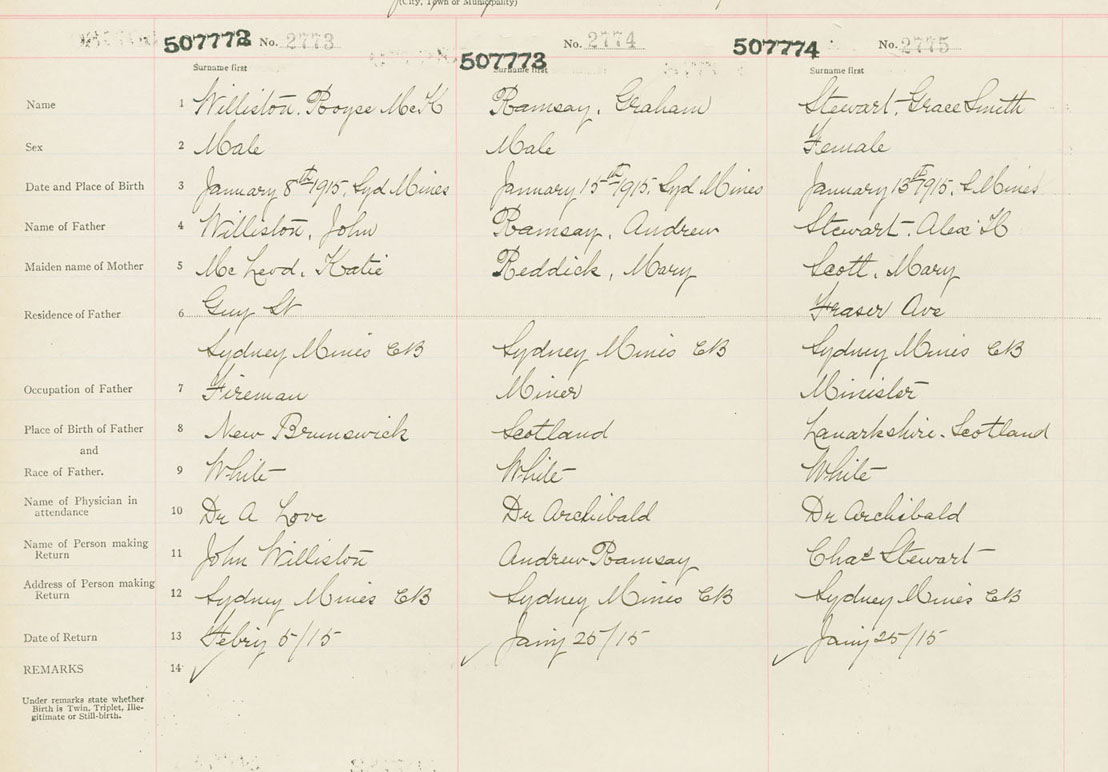 (City, Town or Municipality)
507772 No. 2773 507773 No. 2774 507774 No. 2775
Surname first Surname first Surname first
Name 1 Williston, Royse McK Ramsay, Graham Stewart, Grace Smith
Sex 2 Male Male Female
Date and Place of Birth 3 January 8th 1915, Syd Mines January 15th 1915, Syd Mines January 13th 1915, S Mines
Name of Father 4 Williston, John Ramsay, Andrew Stewart, Alex H
Maiden name of Mother 5 McLeod, Katie Reddick, Mary Scott, Mary
Residence of Father 6 Guy St Fraser Ave
Sydney Mines CB Sydney Mines CB Sydney Mines CB
Occupation of Father 7 Fireman Miner Minister
Place of Birth of Father 8 New Brunswick Scotland Lanarkshire, Scotland
and
Race of Father. 9 White White White
Name of Physician in
attendance 10 Dr A Love Dr Archibald Dr Archibald
Name of Person making
Return 11 John Williston Andrew Ramsay Chas Stewart
Address of Person making
Return 12 Sydney Mines CB Sydney Mines CB Sydney Mines CB
Date of Return 13 Febry 5/15 Jany 25/15 Jany 25/15
REMARKS 14
Under remarks state whether
Birth is Twin, Triplet, Ille-
gitimate or Still-birth.